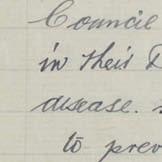 Council
in their
disease.
to prev